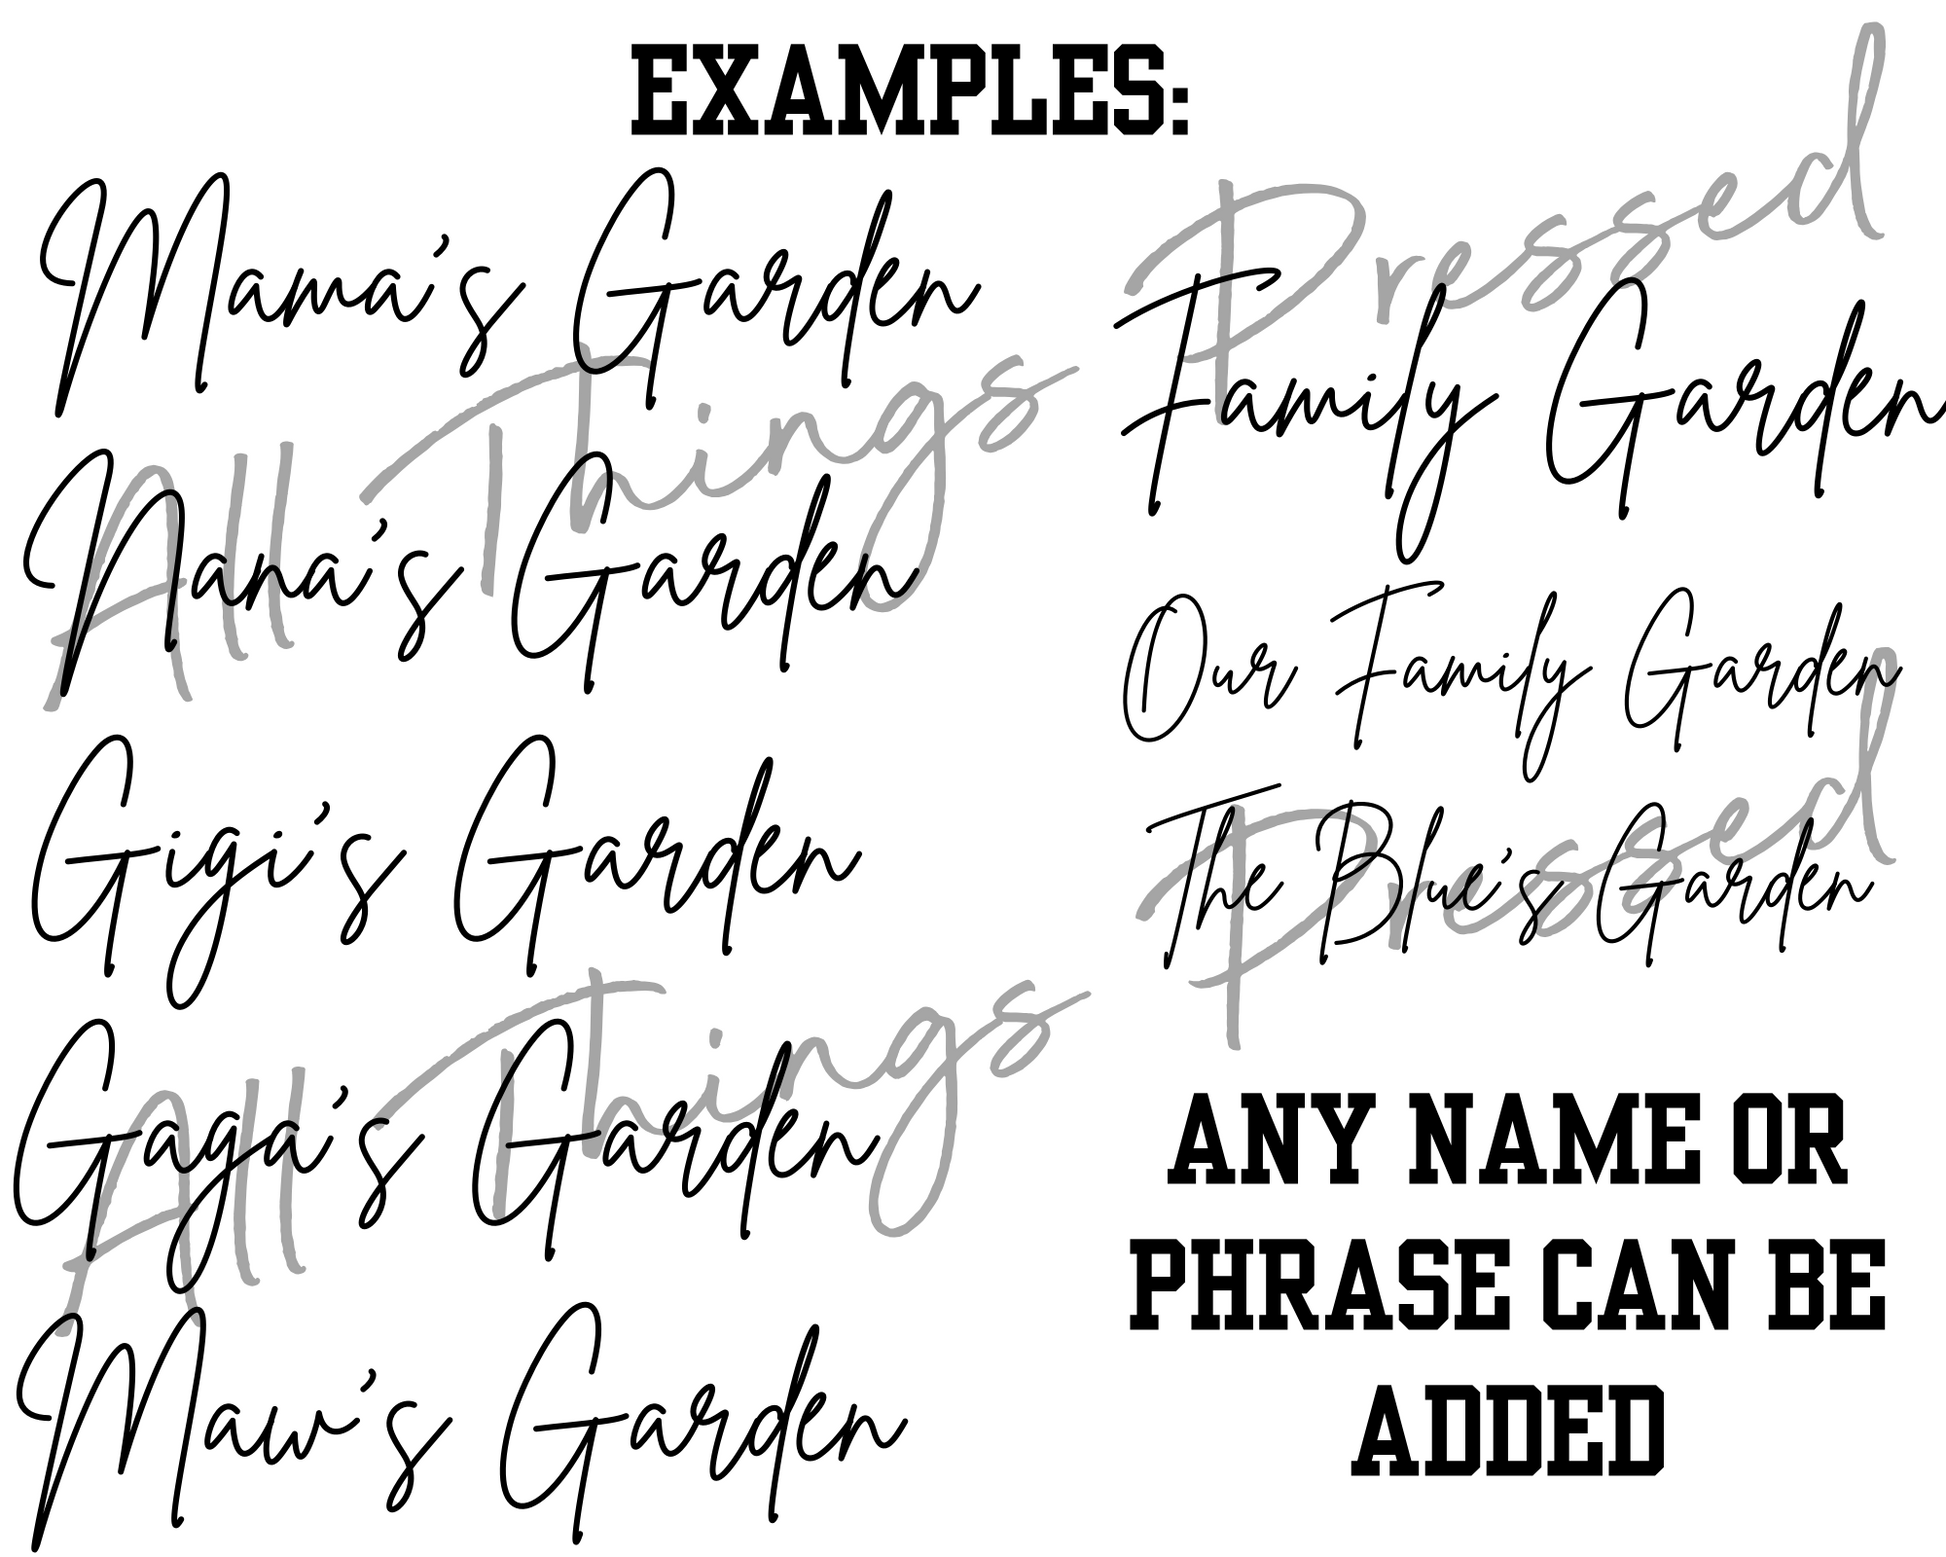 EXAMPLES:
Mama's Garden
Nana's Garden
Gigi's Garden
Gaga's Garden
Maw's Garden
Family Garden
Our Family Garden
The Blue's Garden
ANY NAME OR
PHRASE CAN BE
ADDED
All Things Pressed
All Things Pressed